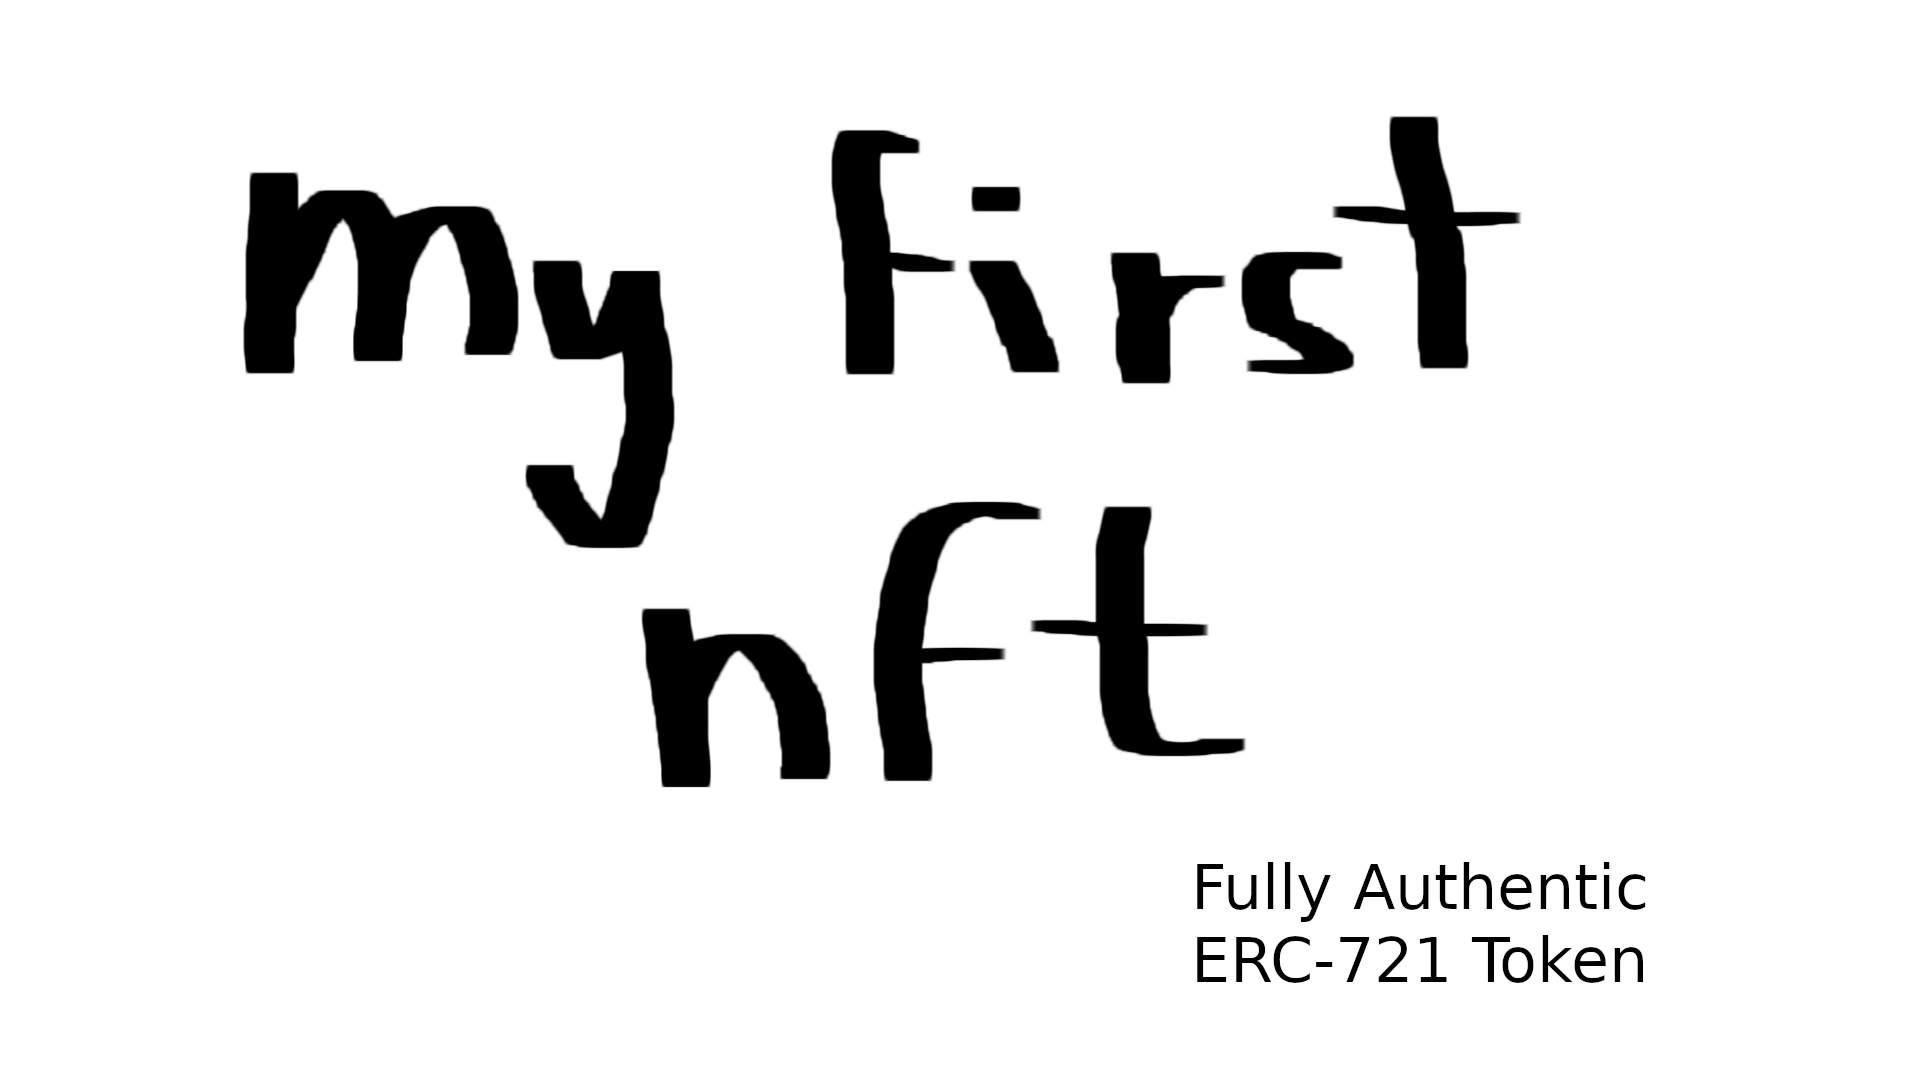 my first
nft
Fully Authentic
ERC-721 Token